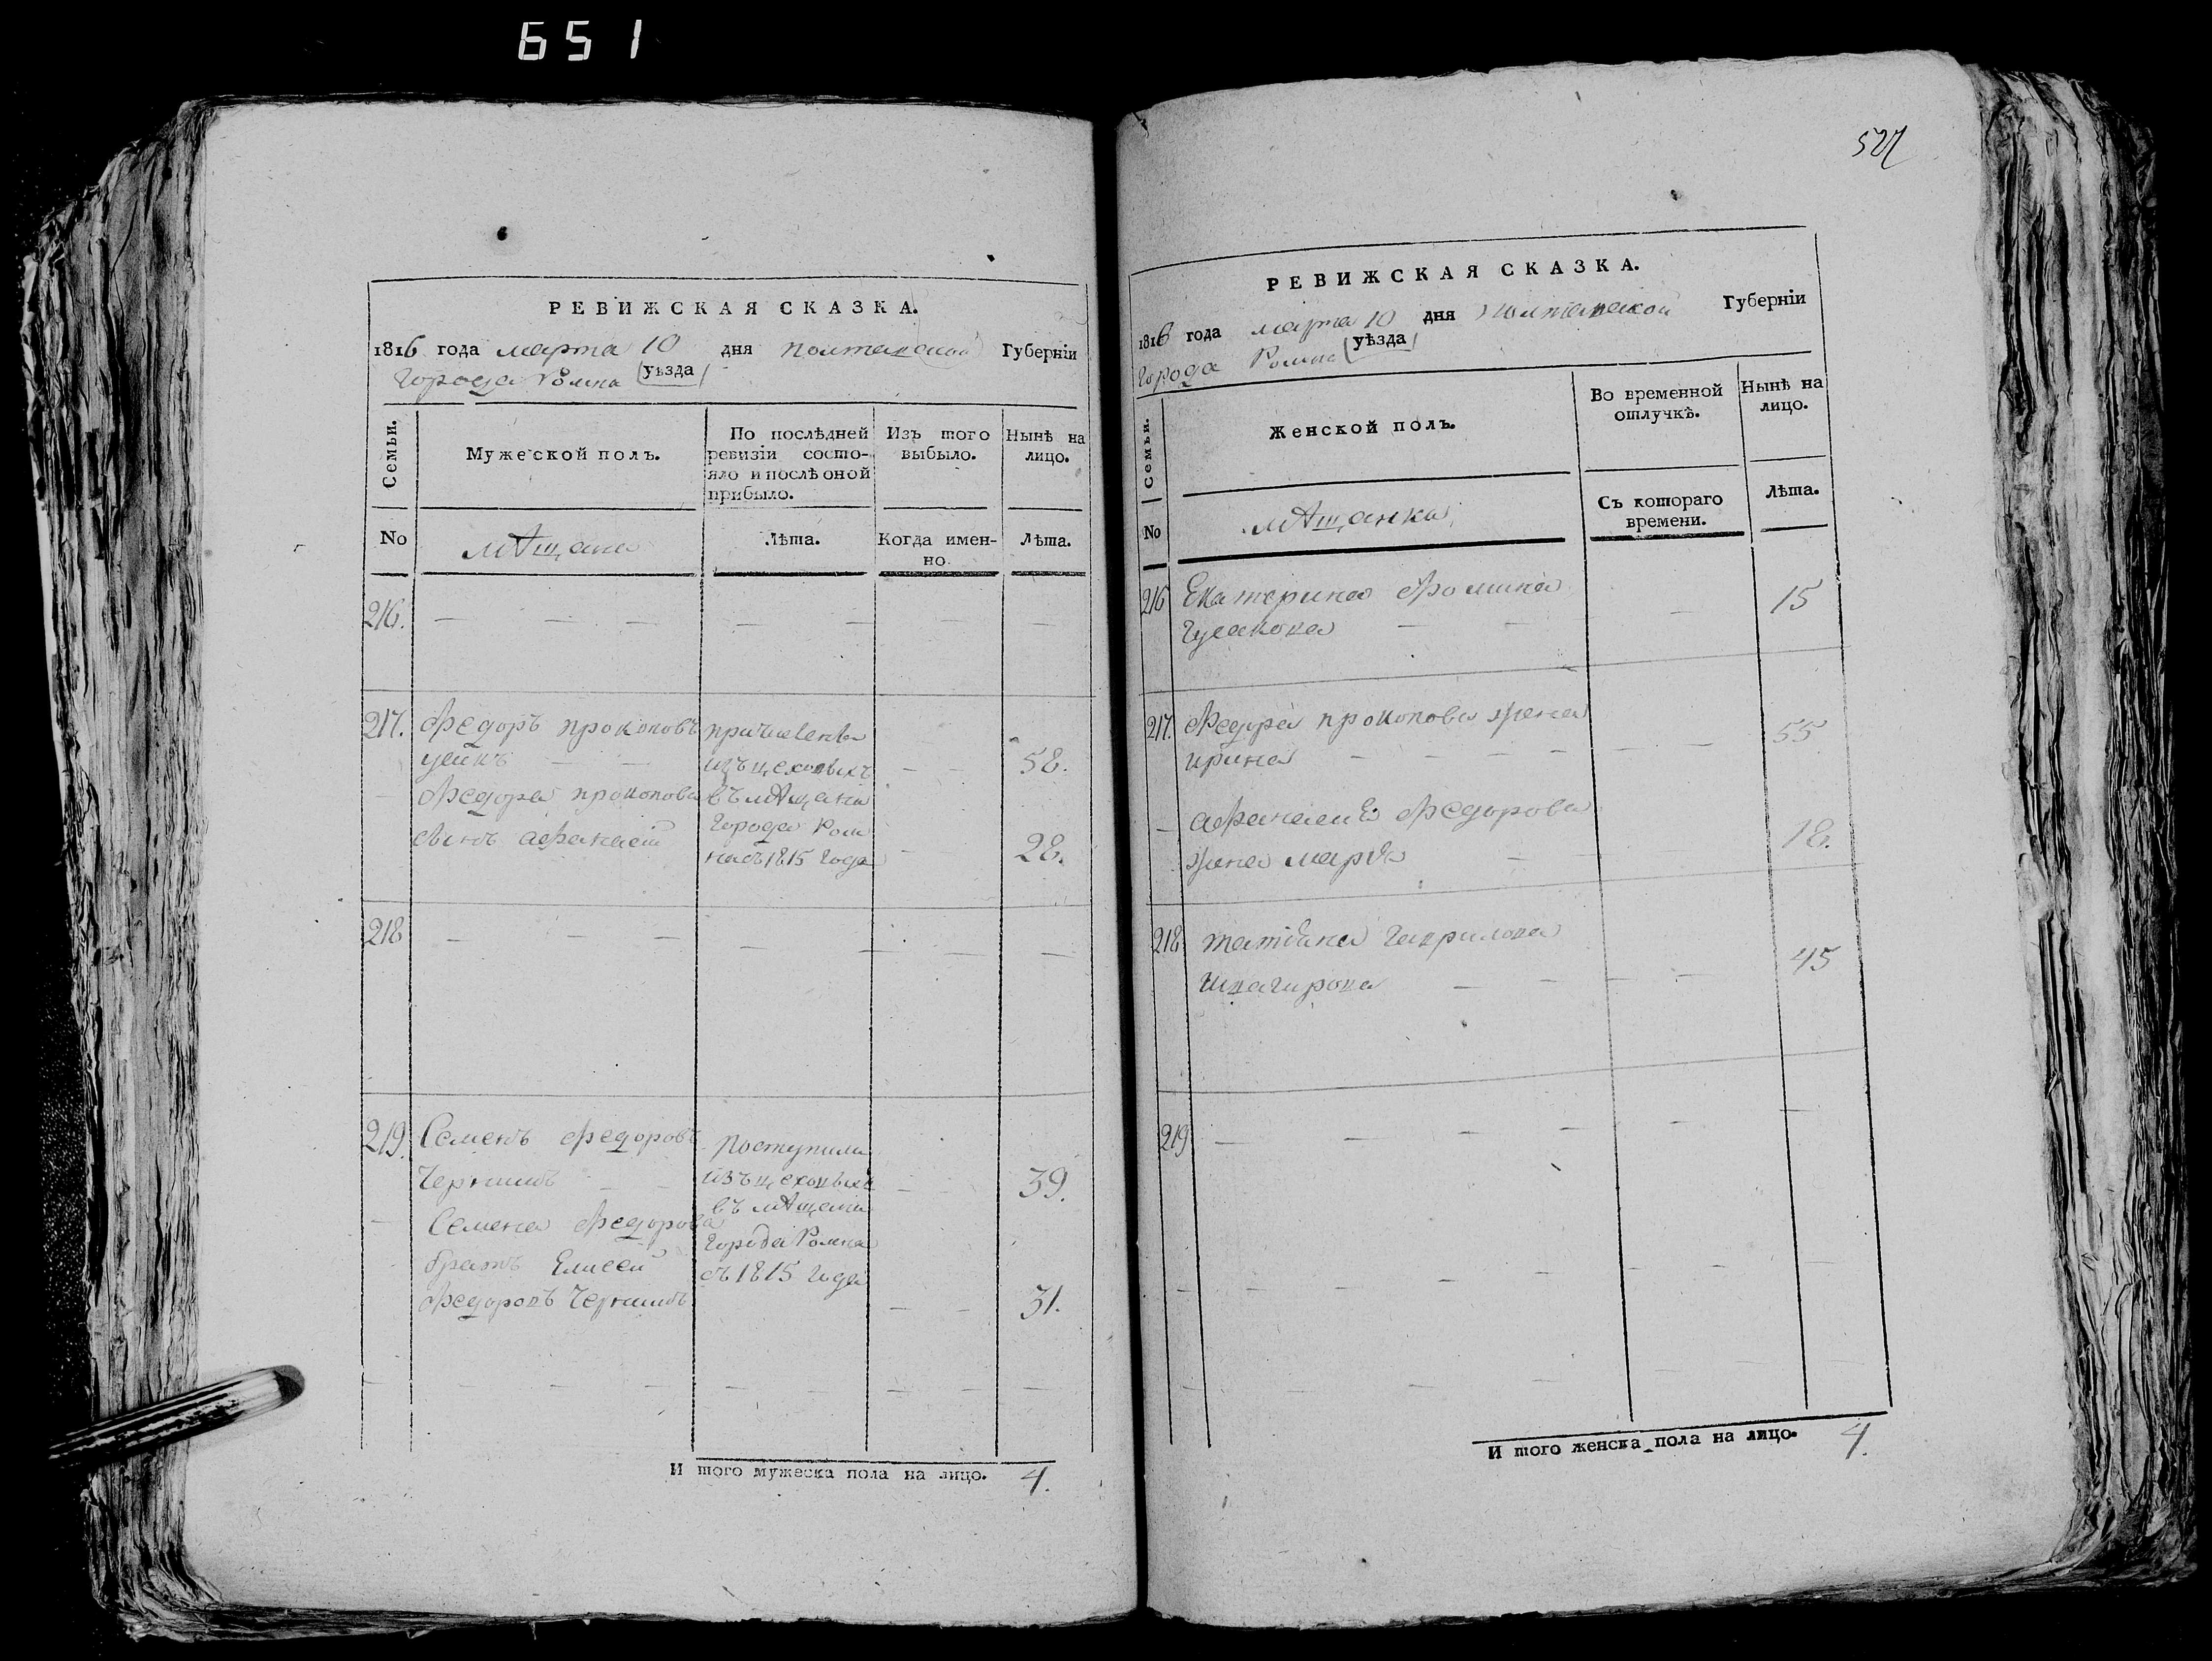 651
РЕВИЖСКАЯ СКАЗКА.
1816 года марта 10 дня полтавской Губерніи
Города Ромна уѣзда
Семьи.
Мужеской полъ.
По послѣдней ревизіи состо-
яло и послѣ оной
прибыло.
Изъ того
выбыло.
Нынѣ на
лицо.
No
мѣщане
Лѣта.
Когда имен-
но.
Лѣта.
216. — — — — — — —
217. Федоръ прокоповъ
— — 58.
Федора прокопова
сынъ афанасій — — 28.
причислены
изъ цеховыхъ
въ мѣщани
Города Ром
на съ 1815 Года
218 — — — — — — —
219. Семенъ Федоровъ
Чернишъ — — — — 39.
— Семена Федорова
братъ Елисей
Федоровъ Чернишъ — — 31.
Поступили
изъ цеховыхъ
въ мѣщани
Города Ромна
съ 1815 Года
И того мужеска пола на лицо. 4.
527
РЕВИЖСКАЯ СКАЗКА.
1816 года марта 10 дня полтавской Губерніи
Города Ромна уѣзда
Семьи.
Женской полъ.
Во временной
отлучкѣ.
Нынѣ на
лицо.
No
мѣщанки
Съ котораго
времени.
Лѣта.
216 Екатерина Фомина
Гусакова — — — 15
217. Федора прокопова жена
ирина — — — — — — 55.
— афанасия Федорова
жена марія — — 18.
218. татіана Гаврилова
Шпагирова — — — — 45
219 — — — — — —
И того женска пола на лицо. 4.